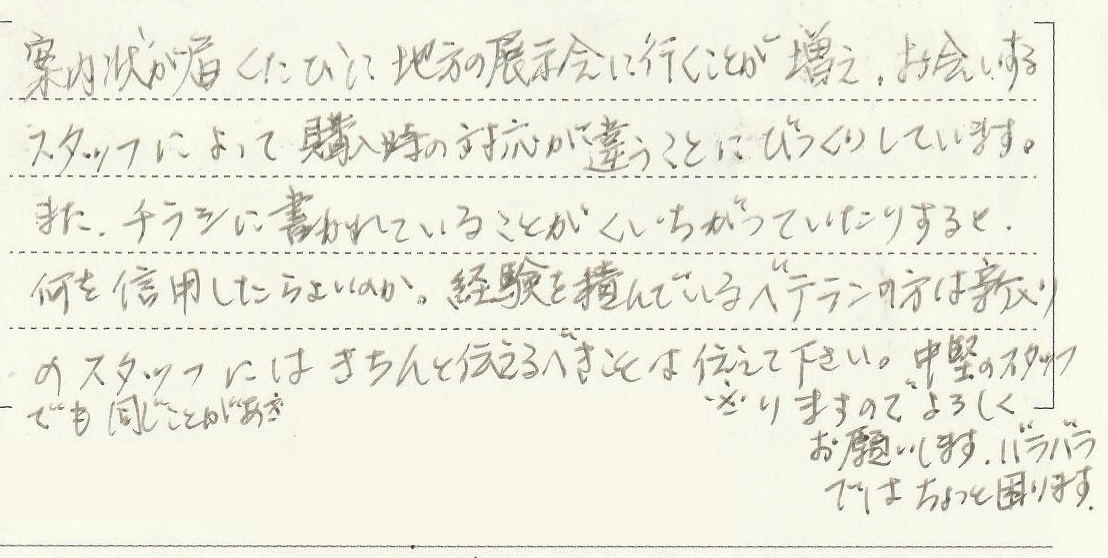 案内状が届くたびに地方の展示会に行くことが増え、お会いする
スタッフによって購入時の対応が違うことにびっくりしています。
また、チラシに書かれていることがくいちがっていたりすると、
何を信用したらよいのか。経験を積んでいるベテランの方は新入り
のスタッフにはきちんと伝えるべきことは伝えて下さい。中堅のスタッフ
でも同じことがあ
ざりますのでよろしく
お願いします。バラバラ
ではちょっと困ります。